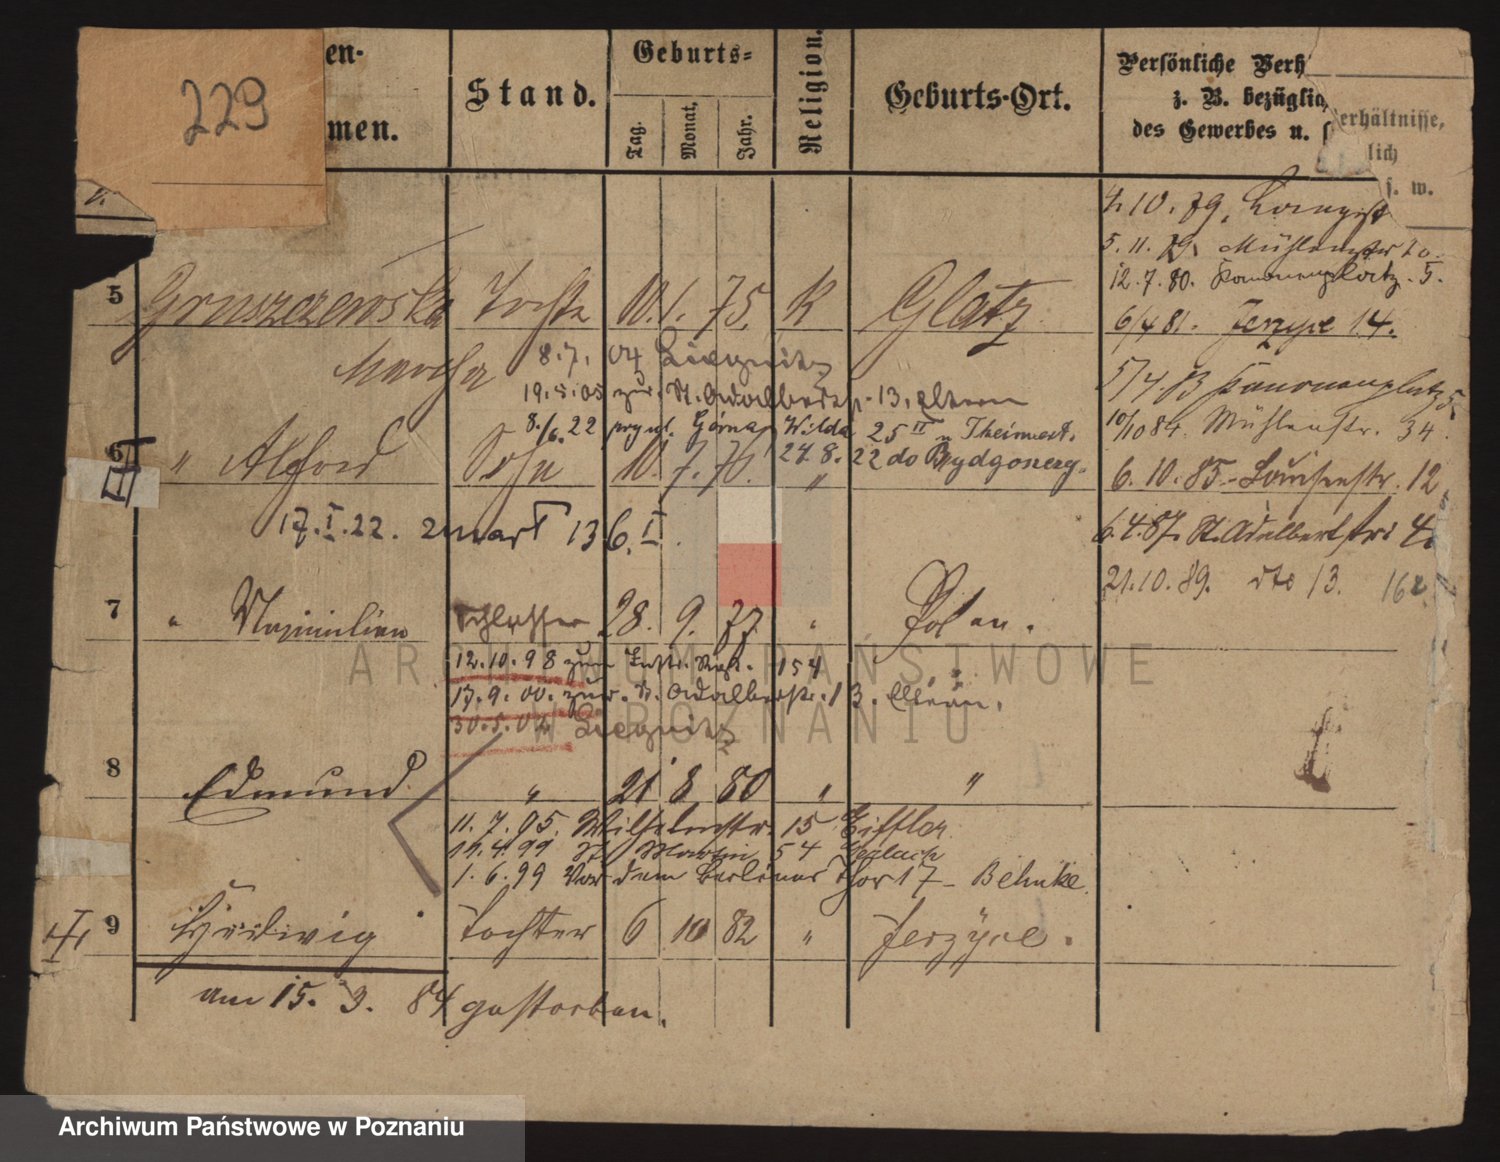 229
en-
men.
Stand.
Geburts-
Tag.
Monat.
Jahr.
Religion.
Geburts-Ort.
Persönliche Verh
z. B. bezüglich
des Gewerbes u.
erhältnisse,
lich
s. w.
4.10.79.
5.11.79. Mühlenstr 20.
12.7.80. Kanonenplatz. 5.
5 Gruszczewska Tochter 10. 1. 75. K Glatz
6/4 81. Jerzyce 14.
Martha 8.7. 04 Liegnitz
19.5.05 zur. St. Adalbertstr. 13, Eltern
5/4.83 Kanonenplatz 5.
8./6.22 Górna Wilda 25 II
6 " Alfred Sohn 10. 7. 76. "
27.8.22 do Bydgoszczy.
10/10 84. Mühlenstr. 34.
6.10.85. Louisenstr. 12
17.I.22. 13 6.I.
6.4.87. St. Adalbertstr 4.
21.10.89. dto 13. 162
7 " Maximilian Schlosser 28. 9. 77 " Posen.
12.10.98 zum 154
17.9.00. zur. St. Adalbertstr. 13. Eltern.
30.5.04 Liegnitz
8 Edmund " 21 8 80 " "
11.7.95. Wilhelmstr. 15
19.4.99 St Martin 54 Gerlach
1.6.99 Vor dem Berliner Thor 17 - Behnke.
9 Hedwig Tochter 6 10 82 " Jerzyce.
am 15. 3. 84 gestorben.
ARCHIWUM PAŃSTWOWE
W POZNANIU
Archiwum Państwowe w Poznaniu